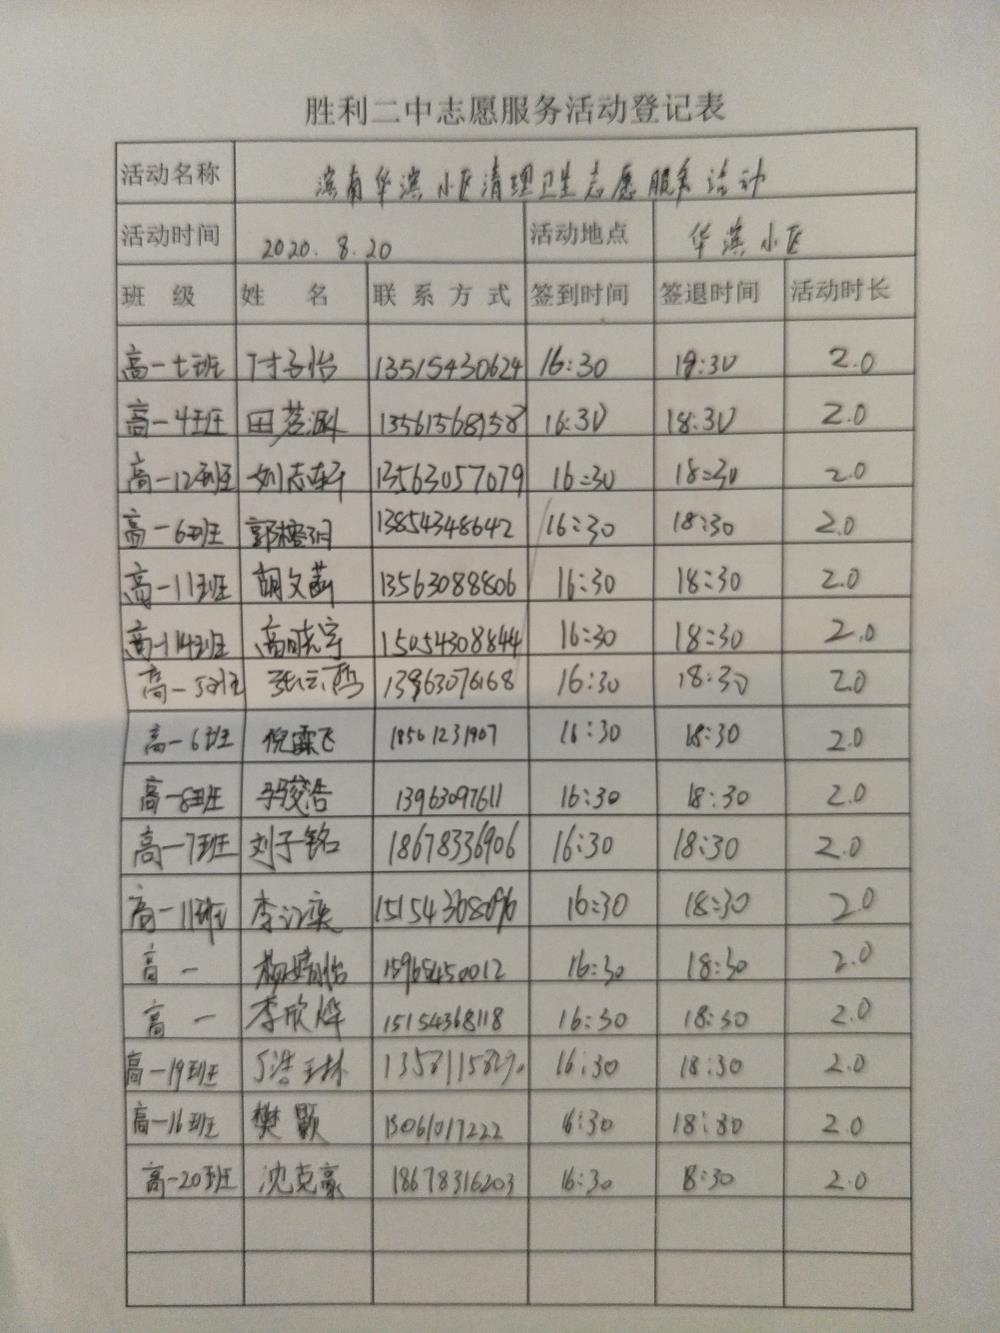 胜利二中志愿服务活动登记表
活动名称 滨南华滨小区清理卫生志愿服务活动
活动时间 2020.8.20 活动地点 华滨小区
班 级 姓 名 联 系 方 式 签到时间 签退时间 活动时长
高一七班 子怡 13515430624 16:30 18:30 2.0
高一4班 田茗涵 13561568958 16:30 18:30 2.0
高一12班 刘志轩 13563057079 16:30 18:30 2.0
高一6班 郭榕 13854348642 16:30 18:30 2.0
高一11班 胡文菡 13563088806 16:30 18:30 2.0
高一14班 高晓宇 15054308844 16:30 18:30 2.0
高一5班 张云 13963076168 16:30 18:30 2.0
高一6班 倪霖飞 18561231907 16:30 18:30 2.0
高一8班 李骏浩 13963097611 16:30 18:30 2.0
高一7班 刘子铭 18678336906 16:30 18:30 2.0
高一11班 李奕 15154368096 16:30 18:30 2.0
高一 杨婧怡 15965450012 16:30 18:30 2.0
高一 李欣烨 15154368118 16:30 18:30 2.0
高一19班 浩 16:30 18:30 2.0
高一16班 樊颢 15061017222 16:30 18:30 2.0
高一20班 沈克豪 18678316203 16:30 18:30 2.0